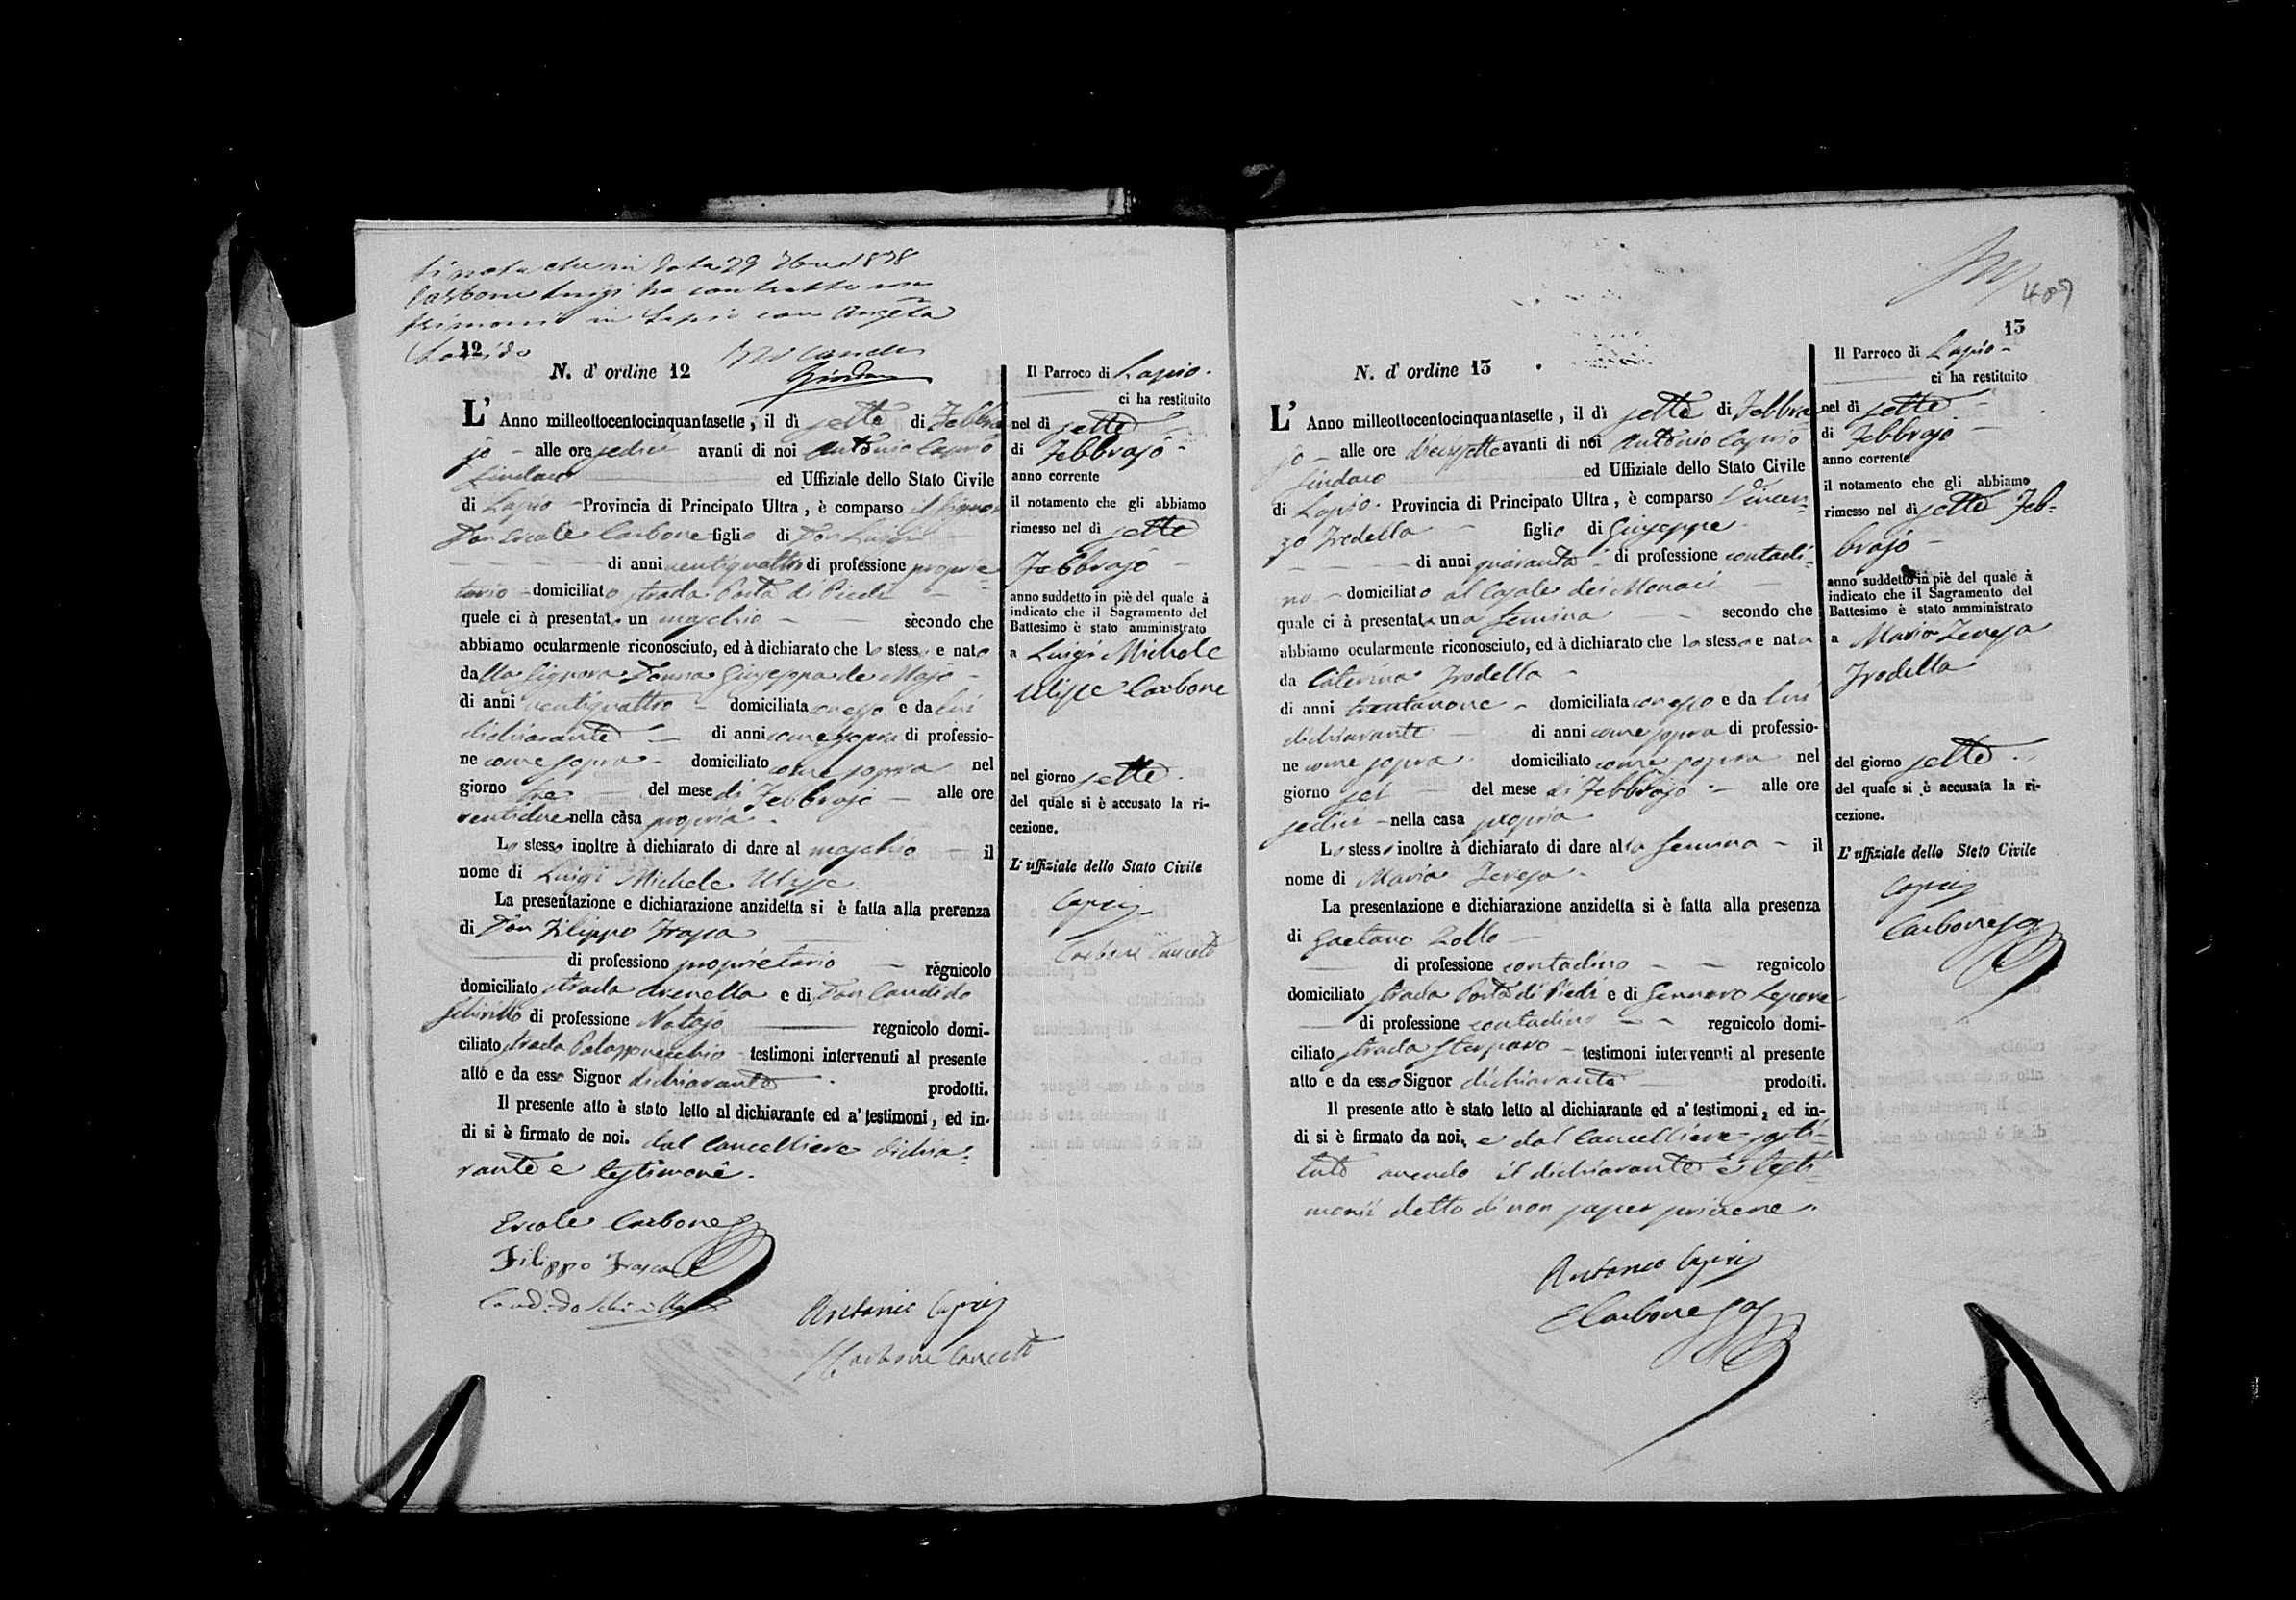 Si nota che in data 29 7bre 1878
Carbone Luigi ha contratto ma
trimonio in Lapio con Angela
12
N. d' ordine 12
L' Anno milleottocentocinquantasette, il dì sette di Febbra
jo - alle ore sedici avanti di noi Antonio Caprio
Sindaco ed Uffiziale dello Stato Civile
di Lapio - Provincia di Principato Ultra, è comparso il Signor
Don Ercole Carbone figlio di Don Luigi
di anni ventiquattro di professione proprie=
tario - domiciliato strada Porta di Piedi
quele ci à presentato un maschio - secondo che
abbiamo ocularmente riconosciuto, ed à dichiarato che lo stesso e nato
dalla Signora Donna Giuseppa de Majo -
di anni ventiquattro - domiciliata con esso e da lui
dichiarante - di anni come sopra di professio-
ne come sopra - domiciliato come sopra nel
giorno tre - del mese di Febbrajo - alle ore
ventidue nella casa propria -
Lo stesso inoltre à dichiarato di dare al maschio - il
nome di Luigi Michele Ulisse
La presentazione e dichiarazione anzidetta si è fatta alla prerenza
di Don Filippo Frasca
di professiono proprietario - regnicolo
domiciliato strada Arenella e di Don Candido
Schirillo di professione Notajo regnicolo domi-
ciliato strada Palazzovecchio - testimoni intervenuti al presente
atto e da esso Signor dichiarante - prodotti.
Il presente atto è stato letto al dichiarante ed a' testimoni, ed in-
di si è firmato de noi. dal Cancelliere dichia=
rante e testimonî.
Ercole Carbone
Filippo Frasca
Candido Schirillo
Antonio Caprio
Carbone Canc
Il Parroco di Lapio -
ci ha restituito
nel dì sette
di Febbrajo -
anno corrente
il notamento che gli abbiamo
rimesso nel di sette
Febbrajo -
anno suddetto in piè del quale à
indicato che il Sagramento del
Battesimo è stato amministrato
a Luigi Michele
Ulisse Carbone
nel giorno sette -
del quale si è accusato la ri-
cezione.
L'uffiziale dello Stato Civile
Caprio
Carbone
489
13
N. d' ordine 13
L' Anno milleottocentocinquantasette, il dì sette di Febbra
jo - alle ore diecissette avanti di noi Antonio Caprio
Sindaco ed Uffiziale dello Stato Civile
di Lapio - Provincia di Principato Ultra, è comparso Vincen=
zo Trodella - figlio di Giuseppe -
di anni quaranta - di professione contadi=
no - domiciliato al Casale dei Monaci
quale ci à presentata una femina - secondo che
abbiamo ocularmente riconosciuto, ed à dichiarato che la stessa e nata
da Caterina Trodella -
di anni trentanove - domiciliata con esso e da lui
dichiarante - di anni come sopra di professio-
ne come sopra - domiciliato come sopra nel
giorno sei - del mese di Febbrajo - alle ore
sedici - nella casa propria
Lo stesso inoltre à dichiarato di dare alla femina - il
nome di Maria Teresa -
La presentazione e dichiarazione anzidetta si è fatta alla presenza
di Gaetano Zollo -
di professione contadino - - regnicolo
domiciliato strada Porta di Piedi e di Gennaro Lepore
di professione contadino - - regnicolo domi-
ciliato strada - testimoni intervenuti al presente
atto e da esso Signor dichiarante - prodotti.
Il presente atto è stato letto al dichiarante ed a' testimoni, ed in-
di si è firmato da noi, e dal Cancelliere sosti=
tuto avendo il dichiarante e testi=
monii detto di non saper scrivere.
Antonio Caprio
E Carbone
Il Parroco di Lapio -
ci ha restituito
nel di sette -
di Febbrajo -
anno corrente
il notamento che gli abbiamo
rimesso nel di sette Feb=
brajo -
anno suddetto in piè del quale à
indicato che il Sagramento del
Battesimo è stato amministrato
a Maria Teresa
Trodella
del giorno sette -
del quale si è accusata la ri-
cezione.
L'uffiziale dello Steto Civile
Caprio
Carbone